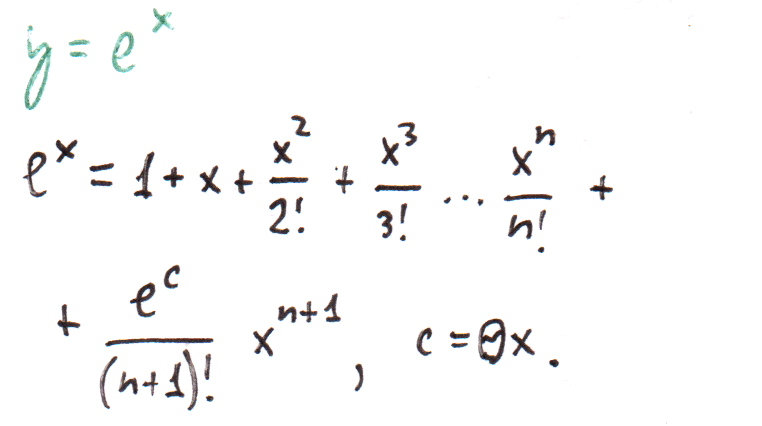 y = e^x
e^x = 1 + x + x^2/2! + x^3/3! ... x^n/n! +
+ e^c/(n+1)! x^{n+1}, c = Θx.